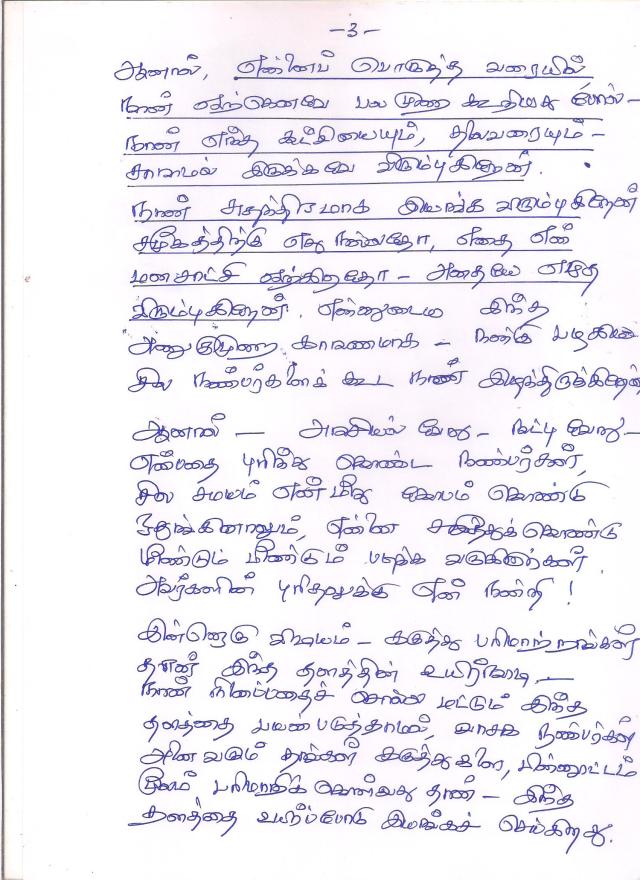 -3-
ஆனால், என்னைப் பொருத்த வரையில்
நான் ஏற்கெனவே பல முறை கூறியது போல் -
நான் எந்த கட்சியையும், தலைவரையும் -
சாராமல் இருக்கவே விரும்புகிறேன்.
நான் சுதந்திரமாக இயங்க விரும்புகிறேன்
சமூகத்திற்கு எது நல்லதோ, எதை என்
மனசாட்சி ஏற்கிறதோ - அதையே எழுத
விரும்புகிறேன். என்னுடைய இந்த
அணுகுமுறை காரணமாக - நன்கு பழகிய
சில நண்பர்களைக் கூட நான் இழந்திருக்கிறேன்,
ஆனால் - அரசியல் வேறு - நட்பு வேறு -
என்பதை புரிந்து கொண்ட நண்பர்கள்,
சில சமயம் என் மீது கோபம் கொண்டு
ஒதுங்கினாலும், என்னை சகித்துக்கொண்டு
மீண்டும் மீண்டும் படிக்க வருகிறார்கள்.
அவர்களின் புரிதலுக்கு என் நன்றி!
இன்னொரு விஷயம் - கருத்து பரிமாற்றங்கள்
தான் இந்த தளத்தின் உயிர்நாடி -
நான் நினைப்பதைச் சொல்ல மட்டும் இந்த
தளத்தை பயன்படுத்தாமல், வாசக நண்பர்கள்
அனைவரும் தங்கள் கருத்துகளை, பின்னூட்டம்
மூலம் பரிமாறிக் கொள்வது தான் - இந்த
தளத்தை உயிர்ப்போடு இயங்கச் செய்கிறது.